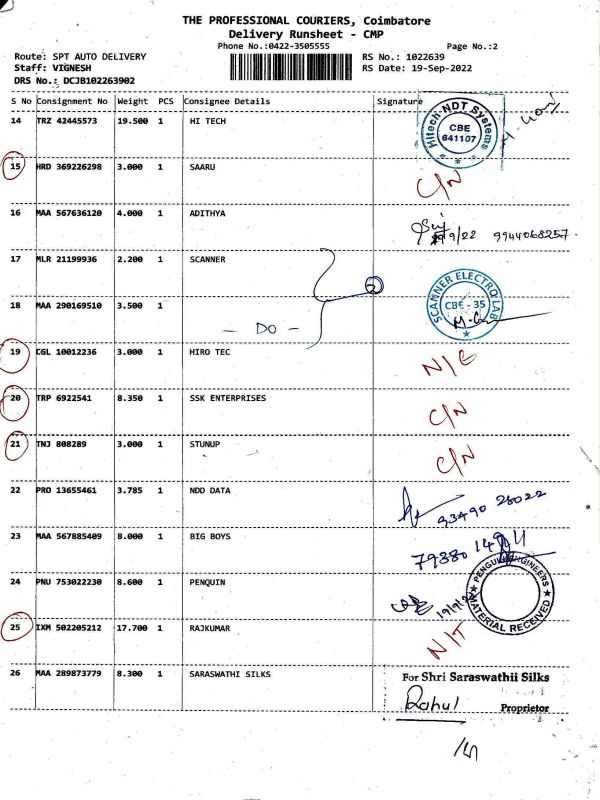 THE PROFESSIONAL COURIERS, Coimbatore
Delivery Runsheet - CMP
Phone No.:0422-3505555 Page No.:2
Route: SPT AUTO DELIVERY RS No.: 1022639
Staff: VIGNESH RS Date: 19-Sep-2022
DRS No.: DCJB102263902
S No Consignment No Weight PCS Consignee Details Signature
14 TRZ 42445573 19.500 1 HI TECH
Hitech NDT Systems
CBE
641107
15 HRD 369226298 3.000 1 SAARU C/N
16 MAA 567636120 4.000 1 ADITHYA
19/9/22 9944068257
17 MLR 21199936 2.200 1 SCANNER
2
SCANNER ELECTRO LAB
CBE - 35
18 MAA 290169510 3.500 1
- DO -
19 CGL 10012236 3.000 1 HIRO TEC N/E
20 TRP 6922541 8.350 1 SSK ENTERPRISES C/N
21 TNJ 808289 3.000 1 STUNUP C/N
22 PRO 13655461 3.785 1 NDD DATA
93490 28022
23 MAA 567885409 8.000 1 BIG BOYS
79380
24 PNU 753022230 8.600 1 PENQUIN
PENGUIN ENGINEERS
MATERIAL RECEIVED
25 IXM 502205212 17.700 1 RAJKUMAR N/T
26 MAA 289873779 8.300 1 SARASWATHI SILKS
For Shri Saraswathii Silks
Rahul
Proprietor